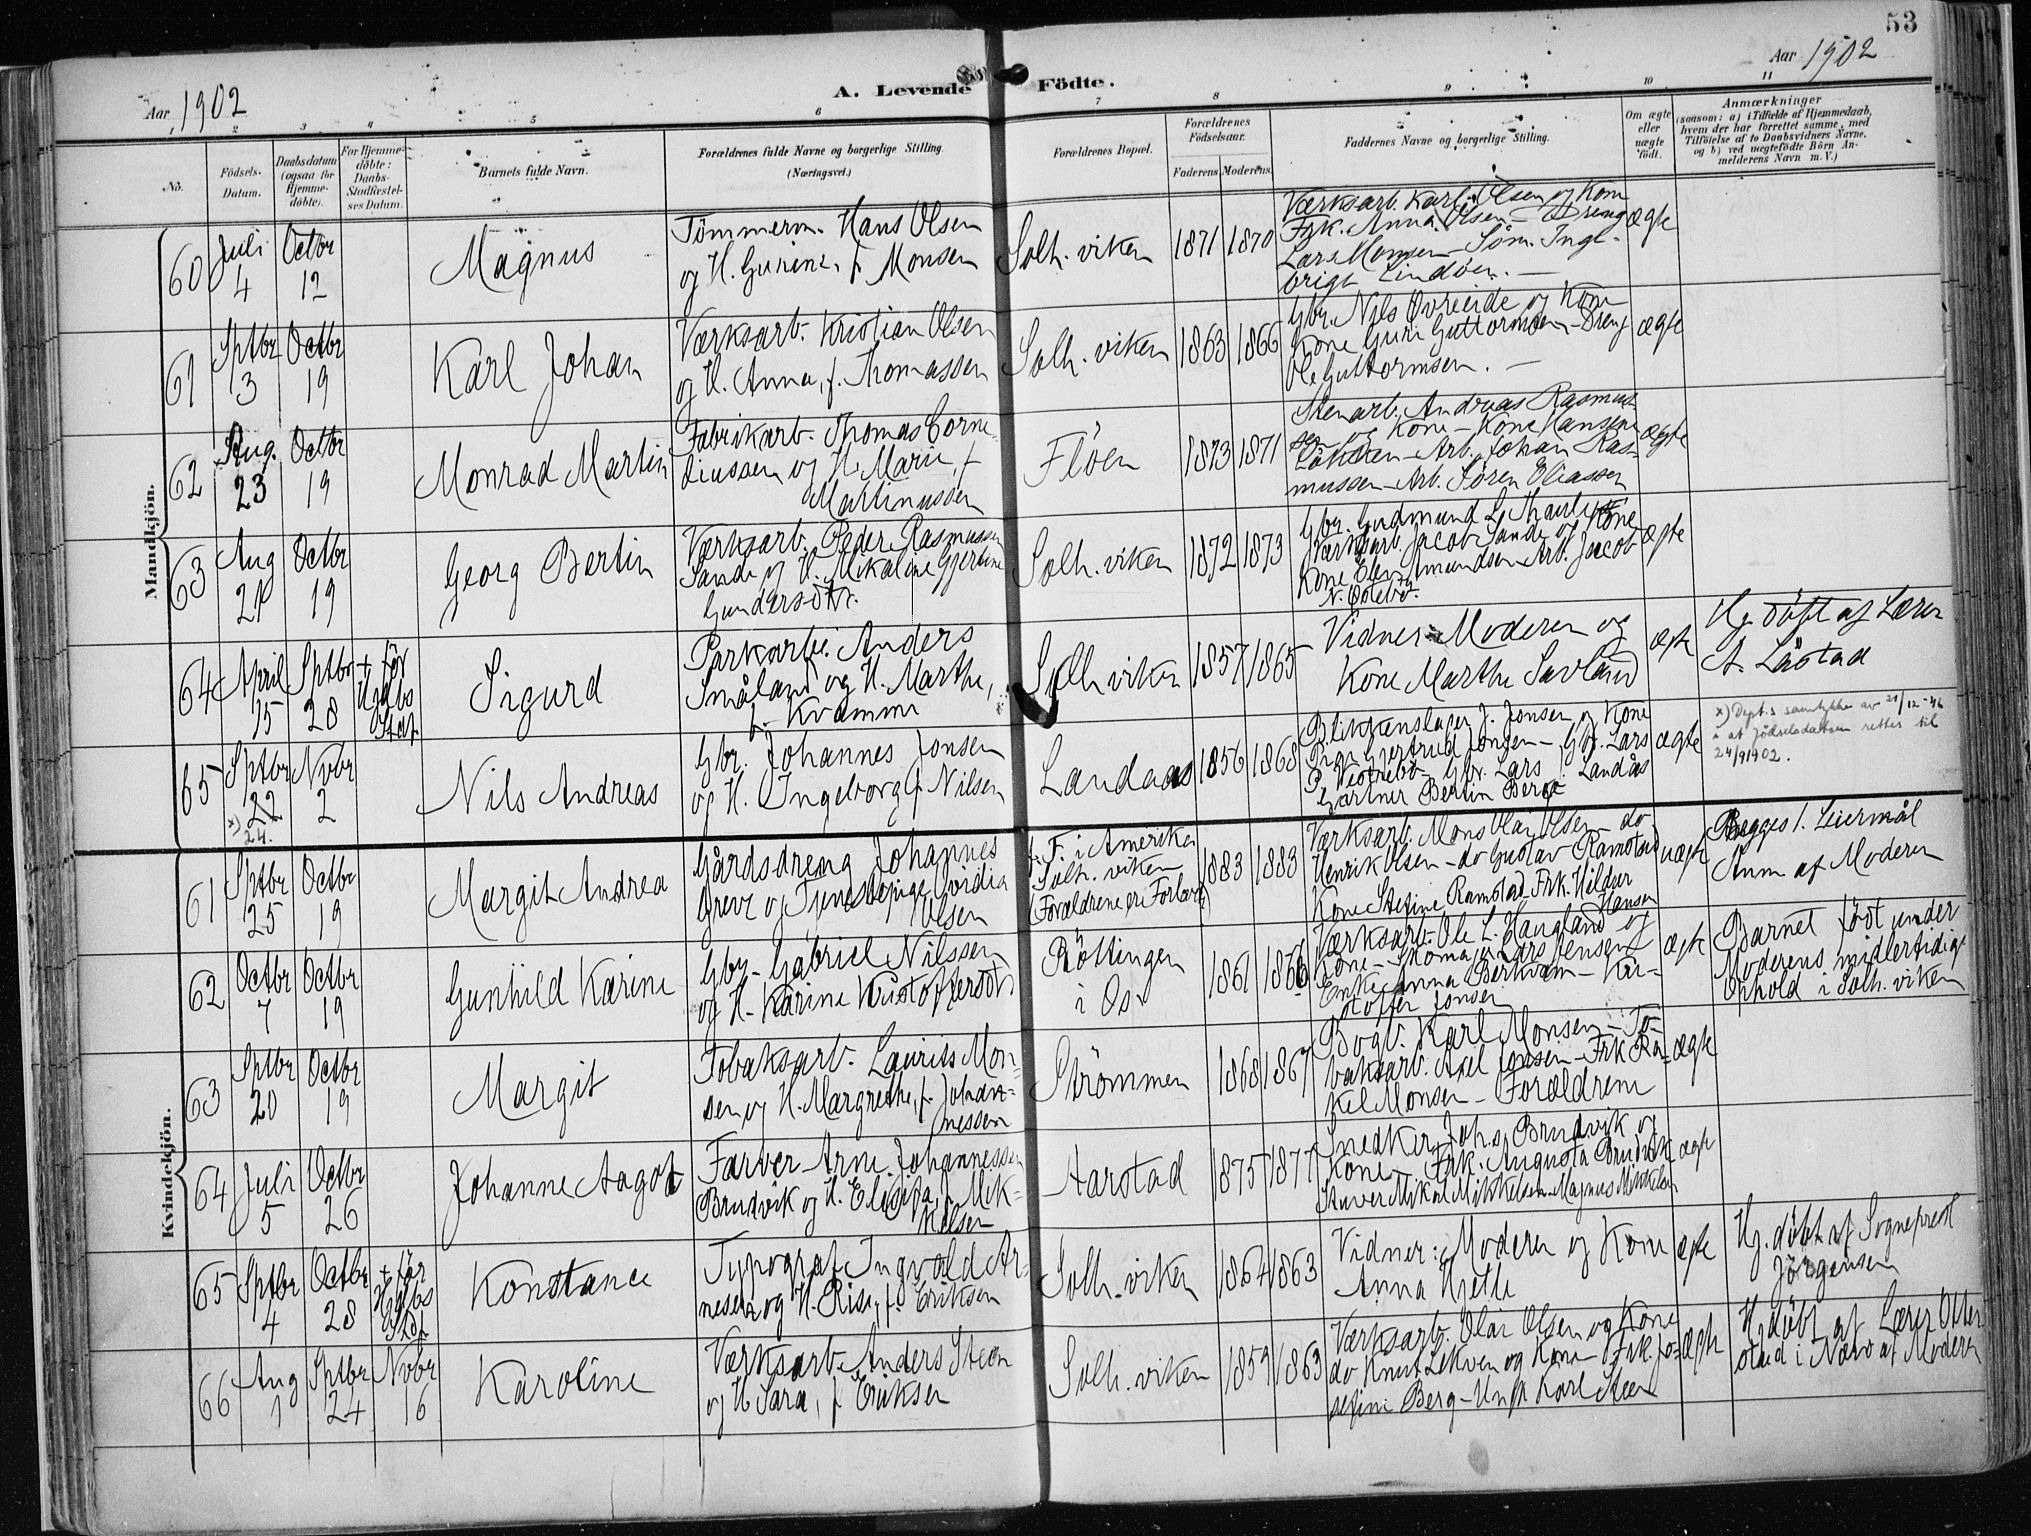 53
Aar 1902
A. Levende Födte.
Aar 1902
1 2 3 4 5 6 7 8 9 10 11
No.
Födsels-
Datum.
Daabsdatum
(ogsaa for
Hjemme-
döbte).
For Hjemme-
döbte:
Daabs-
Stadfæstel-
ses Datum.
Barnets fulde Navn.
Forældrenes fulde Navne og borgerlige Stilling
(Næringsvei.)
Forældrenes Bopæl.
Forældrenes
Födselsaar.
Faderens. Moderens.
Faddernes Navne og borgerlige Stilling.
Om ægte
eller
uægte
födt.
Anmærkninger
(saasom: a) i Tilfælde af Hjemmedaab,
hvem der har forrettet samme, med
Tilföielse af to Daabsvidners Navne.
og b) ved uægtefödte Börn An-
melderens Navn m. V.)
Mandkjön.
60
Juli
4
Octbr
12
Magnus
Tömmerm. Hans Olsen
og H. Gurine, f. Monsen
Solh. viken
1871 1870
Værksarb. Karl Olsen og Kone
Frk. Anna Olsen - Dreng
Lars Monsen - Söm. Inge-
brigt Lindöen. -
ægte
61
Sptbr
3
Octbr
19
Karl Johan
Værksarb. Kristian Olsen
og H. Anna, f. Thomassen
Solh. viken
1863 1866
Gbr. Nils Övreeide og Kone
Kone Guri Guttormsen - Dreng
Ole Guttormsen. -
ægte
62
Aug.
23
Octbr
19
Monrad Martin
Fabrikarb. Thomas Corne-
liussen og H. Marie, f
Martinussen
Flöen
1873 1871
Stenarb. Andreas Rasmus-
sen og Kone - Kone Hansine
Lökken - Arb. Johan Ras-
mussen - Arb. Sören Eliassen
ægte
63
Aug
21
Octbr
19
Georg Bertin
Værksarb. Peder Rasmussen
Sande og H. Mikaline Gjertine
Gundersdtr.
Solh. viken
1872 1873
Gbr. Gudmund L.
Værksarb. Jacob Sande og Kone
Kone Elen Amundsen - Arb. Jacob
N. Östebö.
ægte
64
April
15
Sptbr
28
+ för
Hjdbs
Staf.
Sigurd
Parkarbei. Anders
Småland og H. Marthe,
f. Kvamme
Solh. viken
1857 1865
Vidner: Moderen og
Kone Marthe Sævland
ægte
Hj. döbt af Lærer
A. Låstad
65
Sptbr
22
x) 24.
Novbr
2
Nils Andreas
Gbr. Johannes Jonsen
og H. Ingeborg f. Nilsen
Landaas
1856 1868
Blikkenslager J. Jonsen og Kone
Pige Gjertrud Jonsen - Gbr. Lars
P. Vestrebö - Gbr. Lars . Landås
Gartner Bertin Berge
ægte
x) Dept.s samtykke av 21/12-46
i at födselsdatoen rettes til
24/9 1902.
Kvindekjön.
61
Sptbr
25
Octbr
19
Margit Andrea
Gårdsdreng Johannes
Greve og Tjenestepige Ovidia
Olsen
F. i Amerika
Solh. viken
(Forældrene ere Forlov.)
1883 1883
Værksarb. Mons Olai Olsen - do
Henrik Olsen - do Gustav Ramstad
Kone Stefine Ramstad - Frk. Hildur
Hansen
uægte
Begges 1. Leiermål
Anm af Moderen
62
Octbr
7
Octbr
19
Gunhild Karine
Gbr - Gabriel Nilssen
og H. Karine Kristoffersdtr
Röttingen
i Os
1861 1866
Værksarb. Ole L. Haugland og
Kone - Skomager Lars Jensen
Enke Anna Berkvam - Kri-
stoffer Jonsen
ægte
Barnet födt under
Moderens midlertidige
Ophold i Solh. viken
63
Sptbr
20
Octbr
19
Margit
Tobaksarb. Laurits Mon-
sen og H. Margrethe, f. Johan-
nessen
Strömmen
1868 1867
Bogb. Karl Monsen - To-
baksarb. Axel Jonsen - Frk Ra-
kel Monsen - Forældrene
ægte
64
Juli
5
Octbr
26
Johanne Aagot
Farver Arne Johannessen
Brudvik og H. Elisa, f. Mik-
kelsen
Aarstad
1875 1877
Snedker Johs. Brudvik og
Kone - Frk. Augusta Brudvik
Stuver Mikal Mikkelsen - Magnus Mikkelsen
ægte
65
Sptbr
4
Octbr
28
+ för
Hjdbs
Stdf.
Konstance
Typograf Ingvald Ar-
nesen og H. Risi, f. Eriksen
Solh. viken
1864 1863
Vidner: Moderen og Kone
Anna Hjelle
ægte
Hj. döbt af Sogneprest
Jörgensen
66
Aug
1
Sptbr
24
Novbr
16
Karoline
Værksarb. Anders Steen
og H Sara, f Eriksen
Solh. viken
1859 1863
Værksarb. Olai Olsen og Kone
do Knut Lekven og Kone - Frk. Jo-
sefine Berg - Ungk Karl Steen
ægte
H. döbt af Lærer Ofter
stad i Nærv af Moderen